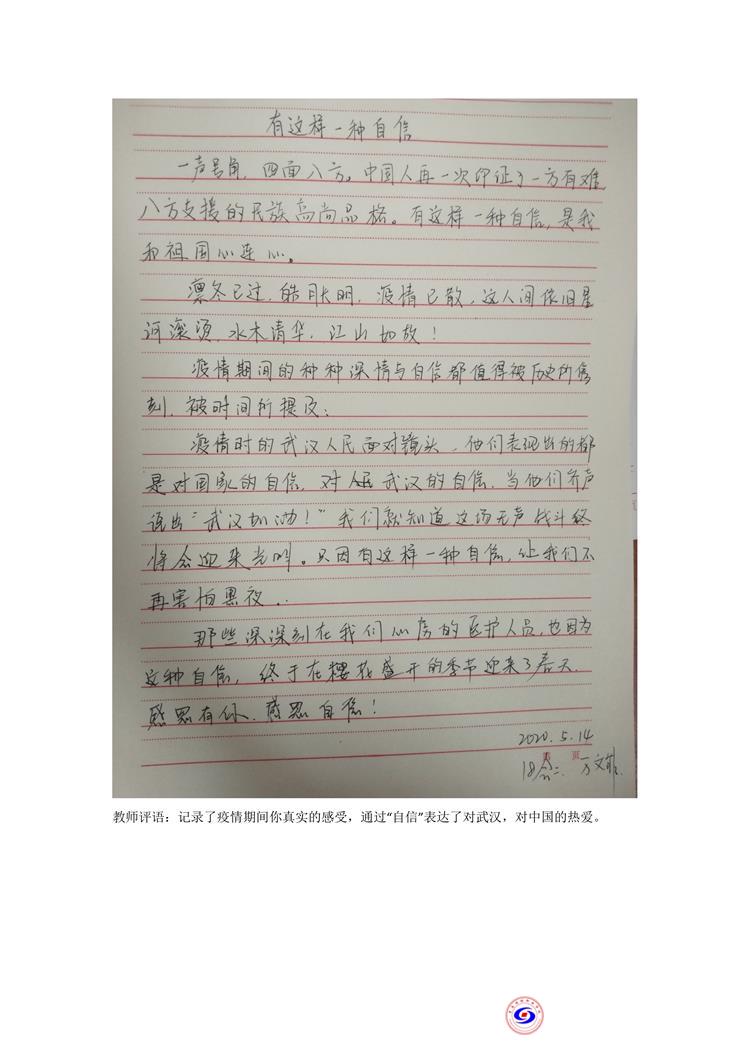 有这样一种自信
一声号角，四面八方。中国人再一次印证了一方有难
八方支援的民族高尚品格。有这样一种自信，是我
和祖国心连心。
凛冬已过，皓月大明，疫情已散，这人间依旧星
河滚烫，水木清华，江山如故！
疫情期间的种种深情与自信都值得被历史所镌
刻，被时间所提及：
疫情时的武汉人民面对镜头，他们表现出的都
是对国家的自信，对人民武汉的自信，当他们齐声
说出“武汉加油！”我们就知道这场无声战斗终
将会迎来光明。只因有这样一种自信，让我们不
再害怕黑夜．
那些深深刻在我们心房的医护人员，也因为
这种自信，终于在樱花盛开的季节迎来了春天．
感恩有你．感恩自信！
2020.5.14
18会二 万文
教师评语：记录了疫情期间你真实的感受，通过“自信”表达了对武汉，对中国的热爱。